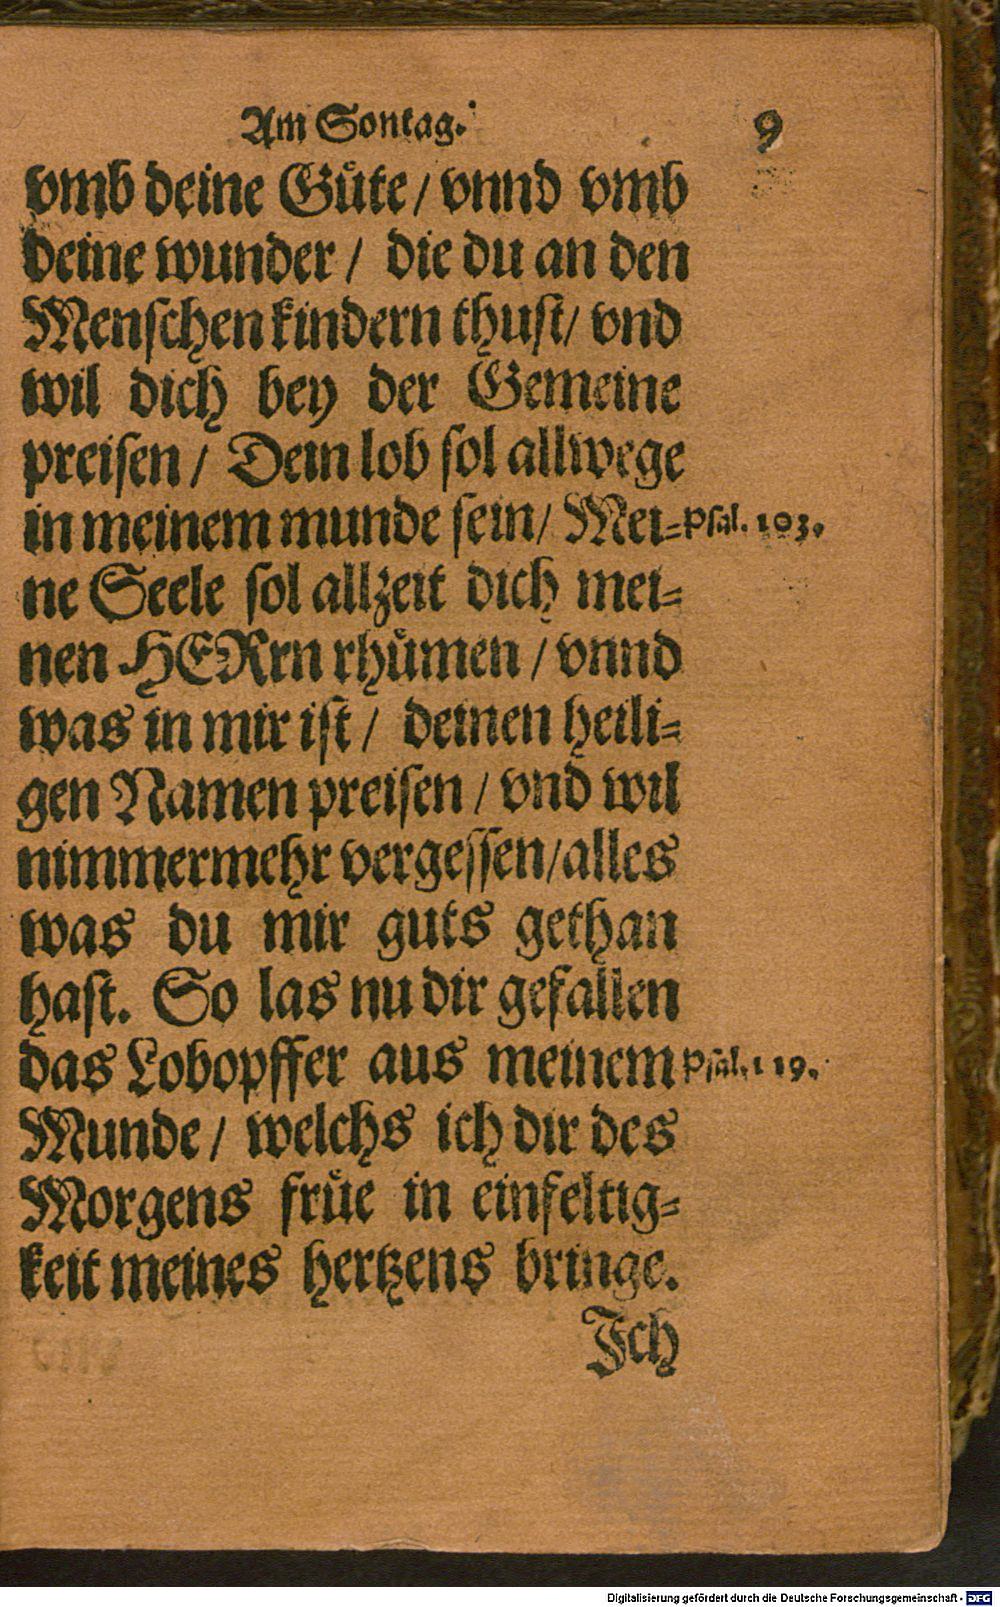 Am Sontag. 9
vmb deine Guͤte / vnnd vmb
deine wunder / die du an den
Menschen kindern thust / vnd
wil dich bey der Gemeine
preisen / Dein lob sol allwege
in meinem munde sein / Mei= Psal. 103.
ne Seele sol allzeit dich mei=
nen HERrn rhuͤmen / vnnd
was in mir ist / deinen heili=
gen Namen preisen / vnd wil
nimmermehr vergessen / alles
was du mir guts gethan
hast. So las nu dir gefallen
das Lobopffer aus meinem Psal. 119.
Munde / welchs ich dir des
Morgens fruͤe in einfeltig=
keit meines hertzens bringe.
Ich
Digitalisierung gefördert durch die Deutsche Forschungsgemeinschaft - DFG